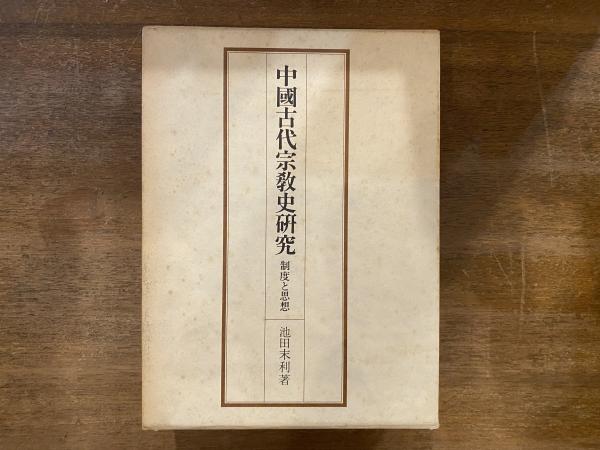 中國古代宗教史研究
制度と思想
池田末利著